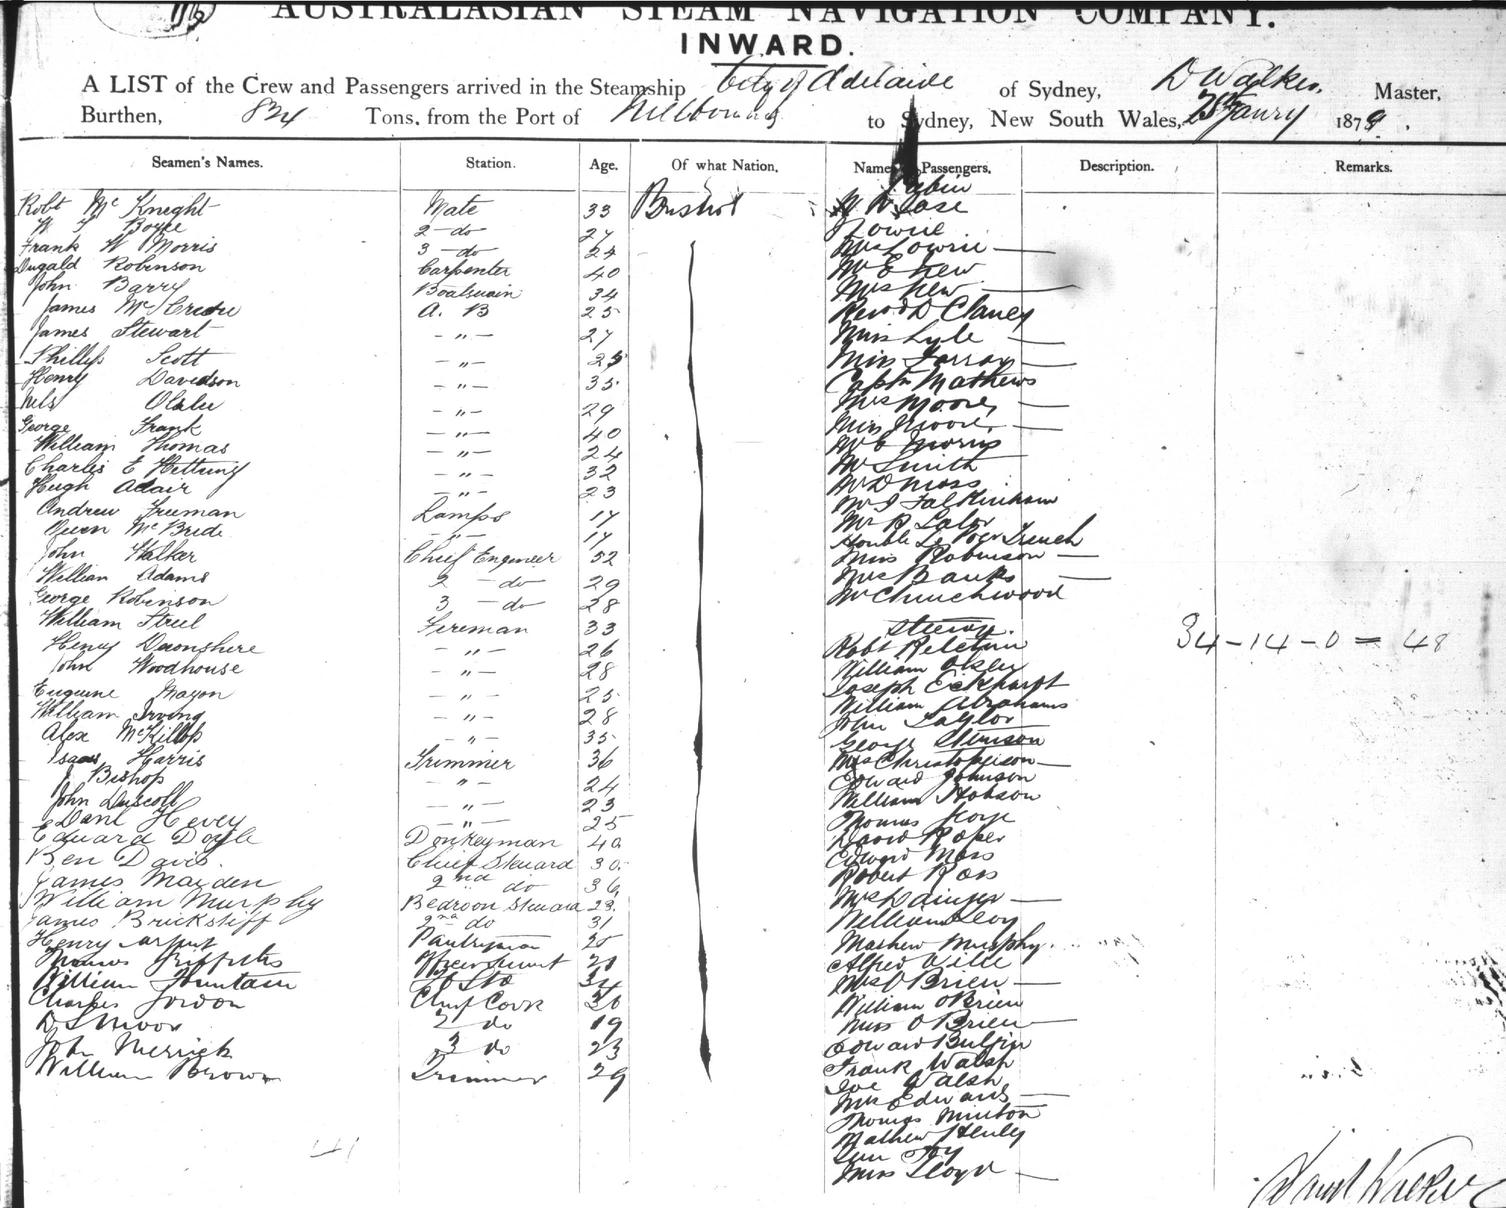 AUSTRALASIAN STEAM NAVIGATION COMPANY.
INWARD.
A LIST of the Crew and Passengers arrived in the Steamship City of Adelaide of Sydney, D Walker, Master,
Burthen, 824 Tons, from the Port of Melbourne to Sydney, New South Wales, 25th Janry 1879.
Seamen's Names. Station. Age. Of what Nation. Names of Passengers. Description. Remarks.
Cabin
Robt Mc Knight Mate 33 British
W Boyce 2 - do 27
J Lowrie
Frank W Morris 3 - do 24
Mrs Lowrie
Dugald Robinson Carpenter 40
Mr E Kew
John Barry Boatswain 34
Mrs Kew
James A. B 25
Revd D Clancy
James Stewart - " - 27
Miss Lyle
Phillip Scott - " - 25
Miss Farray
Henry Davidson - " - 35
Captn Mathews
Nils - " - 29
Mrs Moore
George Frank - " - 40
Miss Moore
William Thomas - " - 24
Mr E Morris
Charles E - " - 32
Mr Smith
Hugh Adair - " - 23
Mr D Moss
Andrew Freeman Lamps 17
Mr J Falkinham
Owen McBride - " - 17
Mr R Lalor
Honble Le Poer Trench
John Walker Chief Engineer 52
Miss Robinson
William Adams 2 - do 29
Mrs Banks
George Robinson 3 - do 28
Mr Churchwood
William Steel Fireman 33
Steerage.
34-14-0 = 48
Henry Devonshire - " - 26
Robt
John Woodhouse - " - 28
William Oxley
Eugene Mayon - " - 25
Joseph Eckhardt
William Irving - " - 28
William Abrahams
John Taylor
Alex McKillop - " - 35
George Stimson
Isaac Harris Trimmer 36
Mrs Christopherson
J Bishop - " - 24
Edward Johnson
John Driscoll - " - 23
William Hobson
Danl Hevey - " - 25
Thomas George
Edward Doyle Donkeyman 40
David Roper
Ben Davis. Chief Steward 30.
Edward Moss
James Mayden 2nd do 36
Robert Ross
William Murphy Bedroon Steward 23.
Mrs Dainger
James Brickstiff 2nd do 31
William Levy
Henry Pantryman 20
Mathew Murphy.
Thomas Griffiths Officer Servant 21
Alfred Wille
William Fountain 34
Mrs O'Brien
Charles Gordon Chief Cook 36
William O'Brien
D S Moor 2 do 19
Miss O'Brien
John Merrick 3 do 23
Edward Bulfin
William Brown Trimmer 29
Frank Walsh
Joe Walsh
Mrs Edwards
Thomas Minton
Mathew Henley
Miss Lloyd
41
David Walker